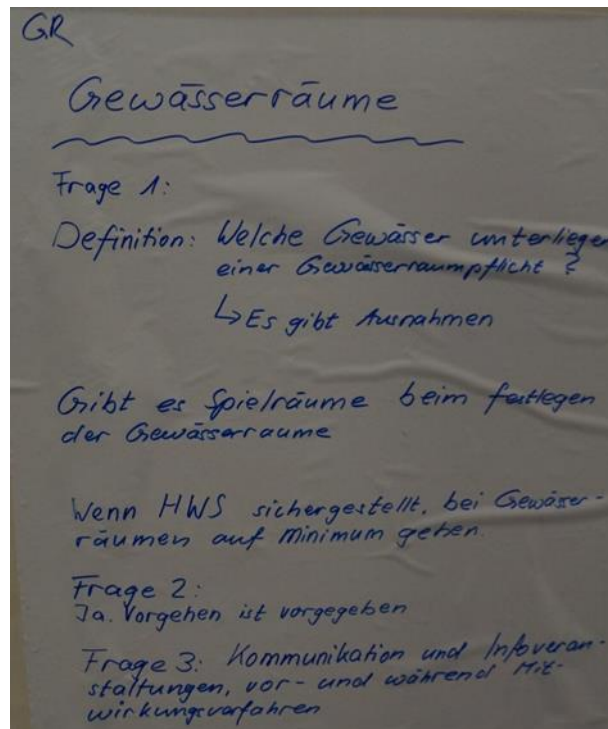 GR
Gewässerräume
Frage 1:
Definition: Welche Gewässer unterliegen
einer Gewässerraumpflicht?
↳ Es gibt Ausnahmen
Gibt es Spielräume beim festlegen
der Gewässerraume
Wenn HWS sichergestellt, bei Gewässer-
räumen auf Minimum gehen.
Frage 2:
Ja. Vorgehen ist vorgegeben
Frage 3: Kommunikation und Infoveran-
staltungen, vor- und während Mit-
wirkungsverfahren